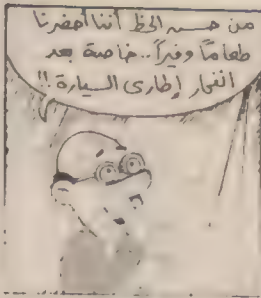 من حسن الحظ أننا أحضرنا
طعاماً وفيراً.. خاصة بعد
انفجار إطارى السيارة!!